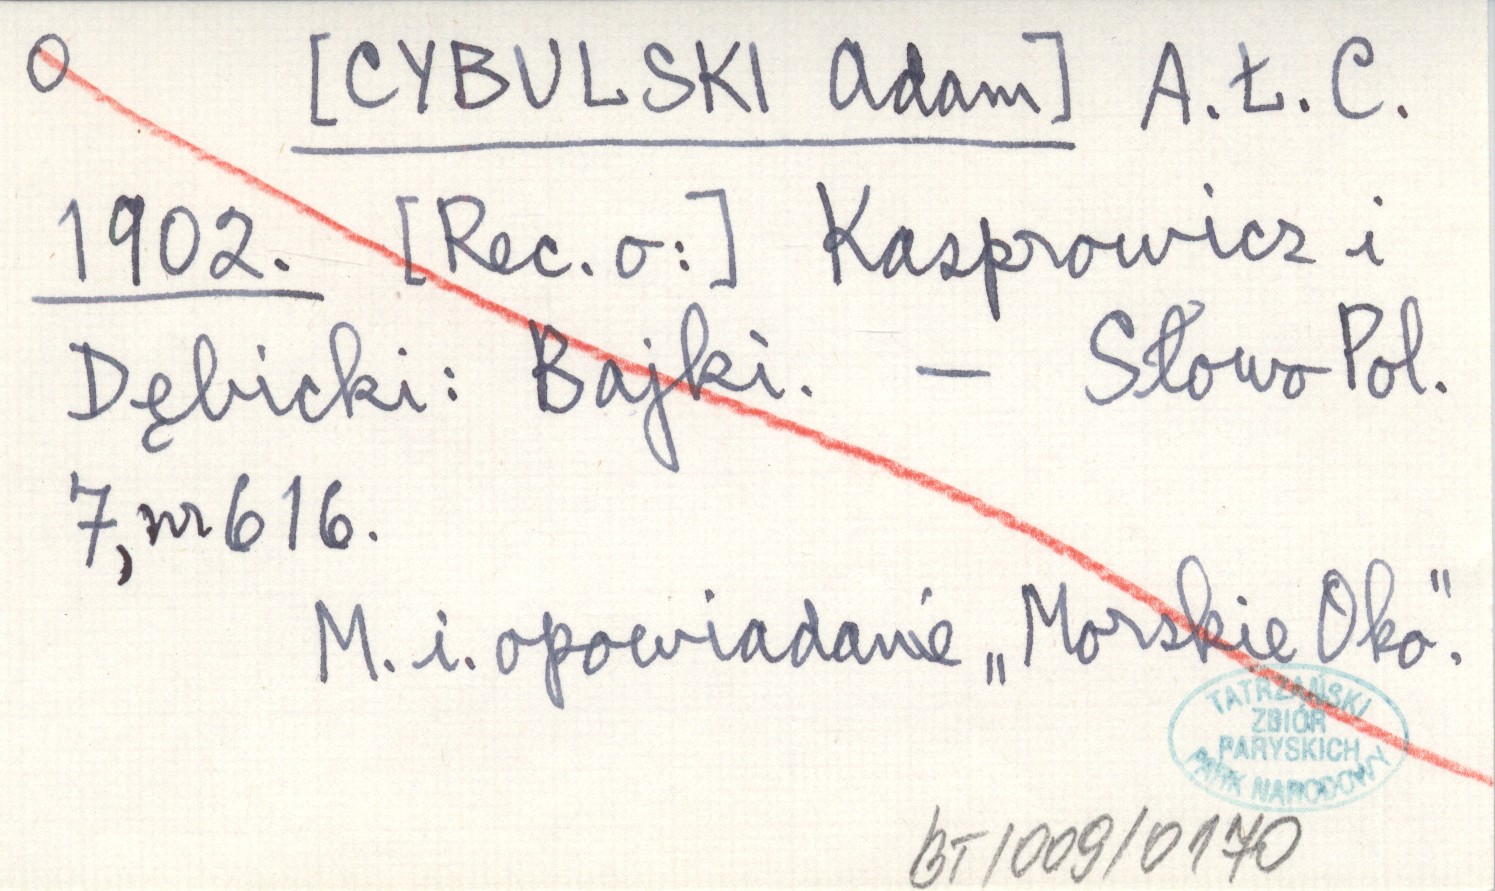 O [CYBULSKI Adam] A.Ł.C.
1902. [Rec. o:] Kasprowicz i
Dębicki: Bajki. — Słowo Pol.
7, nr 616.
M. i. opowiadanie „Morskie Oko".
TATRZAŃSKI
ZBIÓR
PARYSKICH
PARK NARODOWY
BT/009/0170